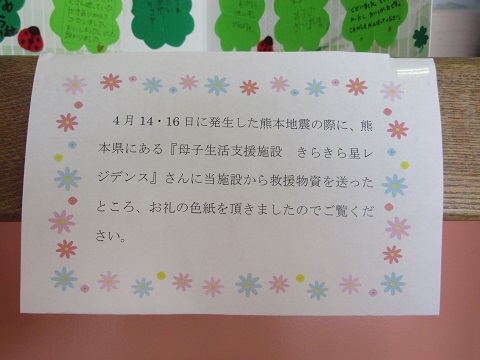 ４月 14・16 日に発生した熊本地震の際に、熊
本県にある『母子生活支援施設　きらきら星レ
ジデンス』さんに当施設から救援物資を送った
ところ、お礼の色紙を頂きましたのでご覧くだ
さい。